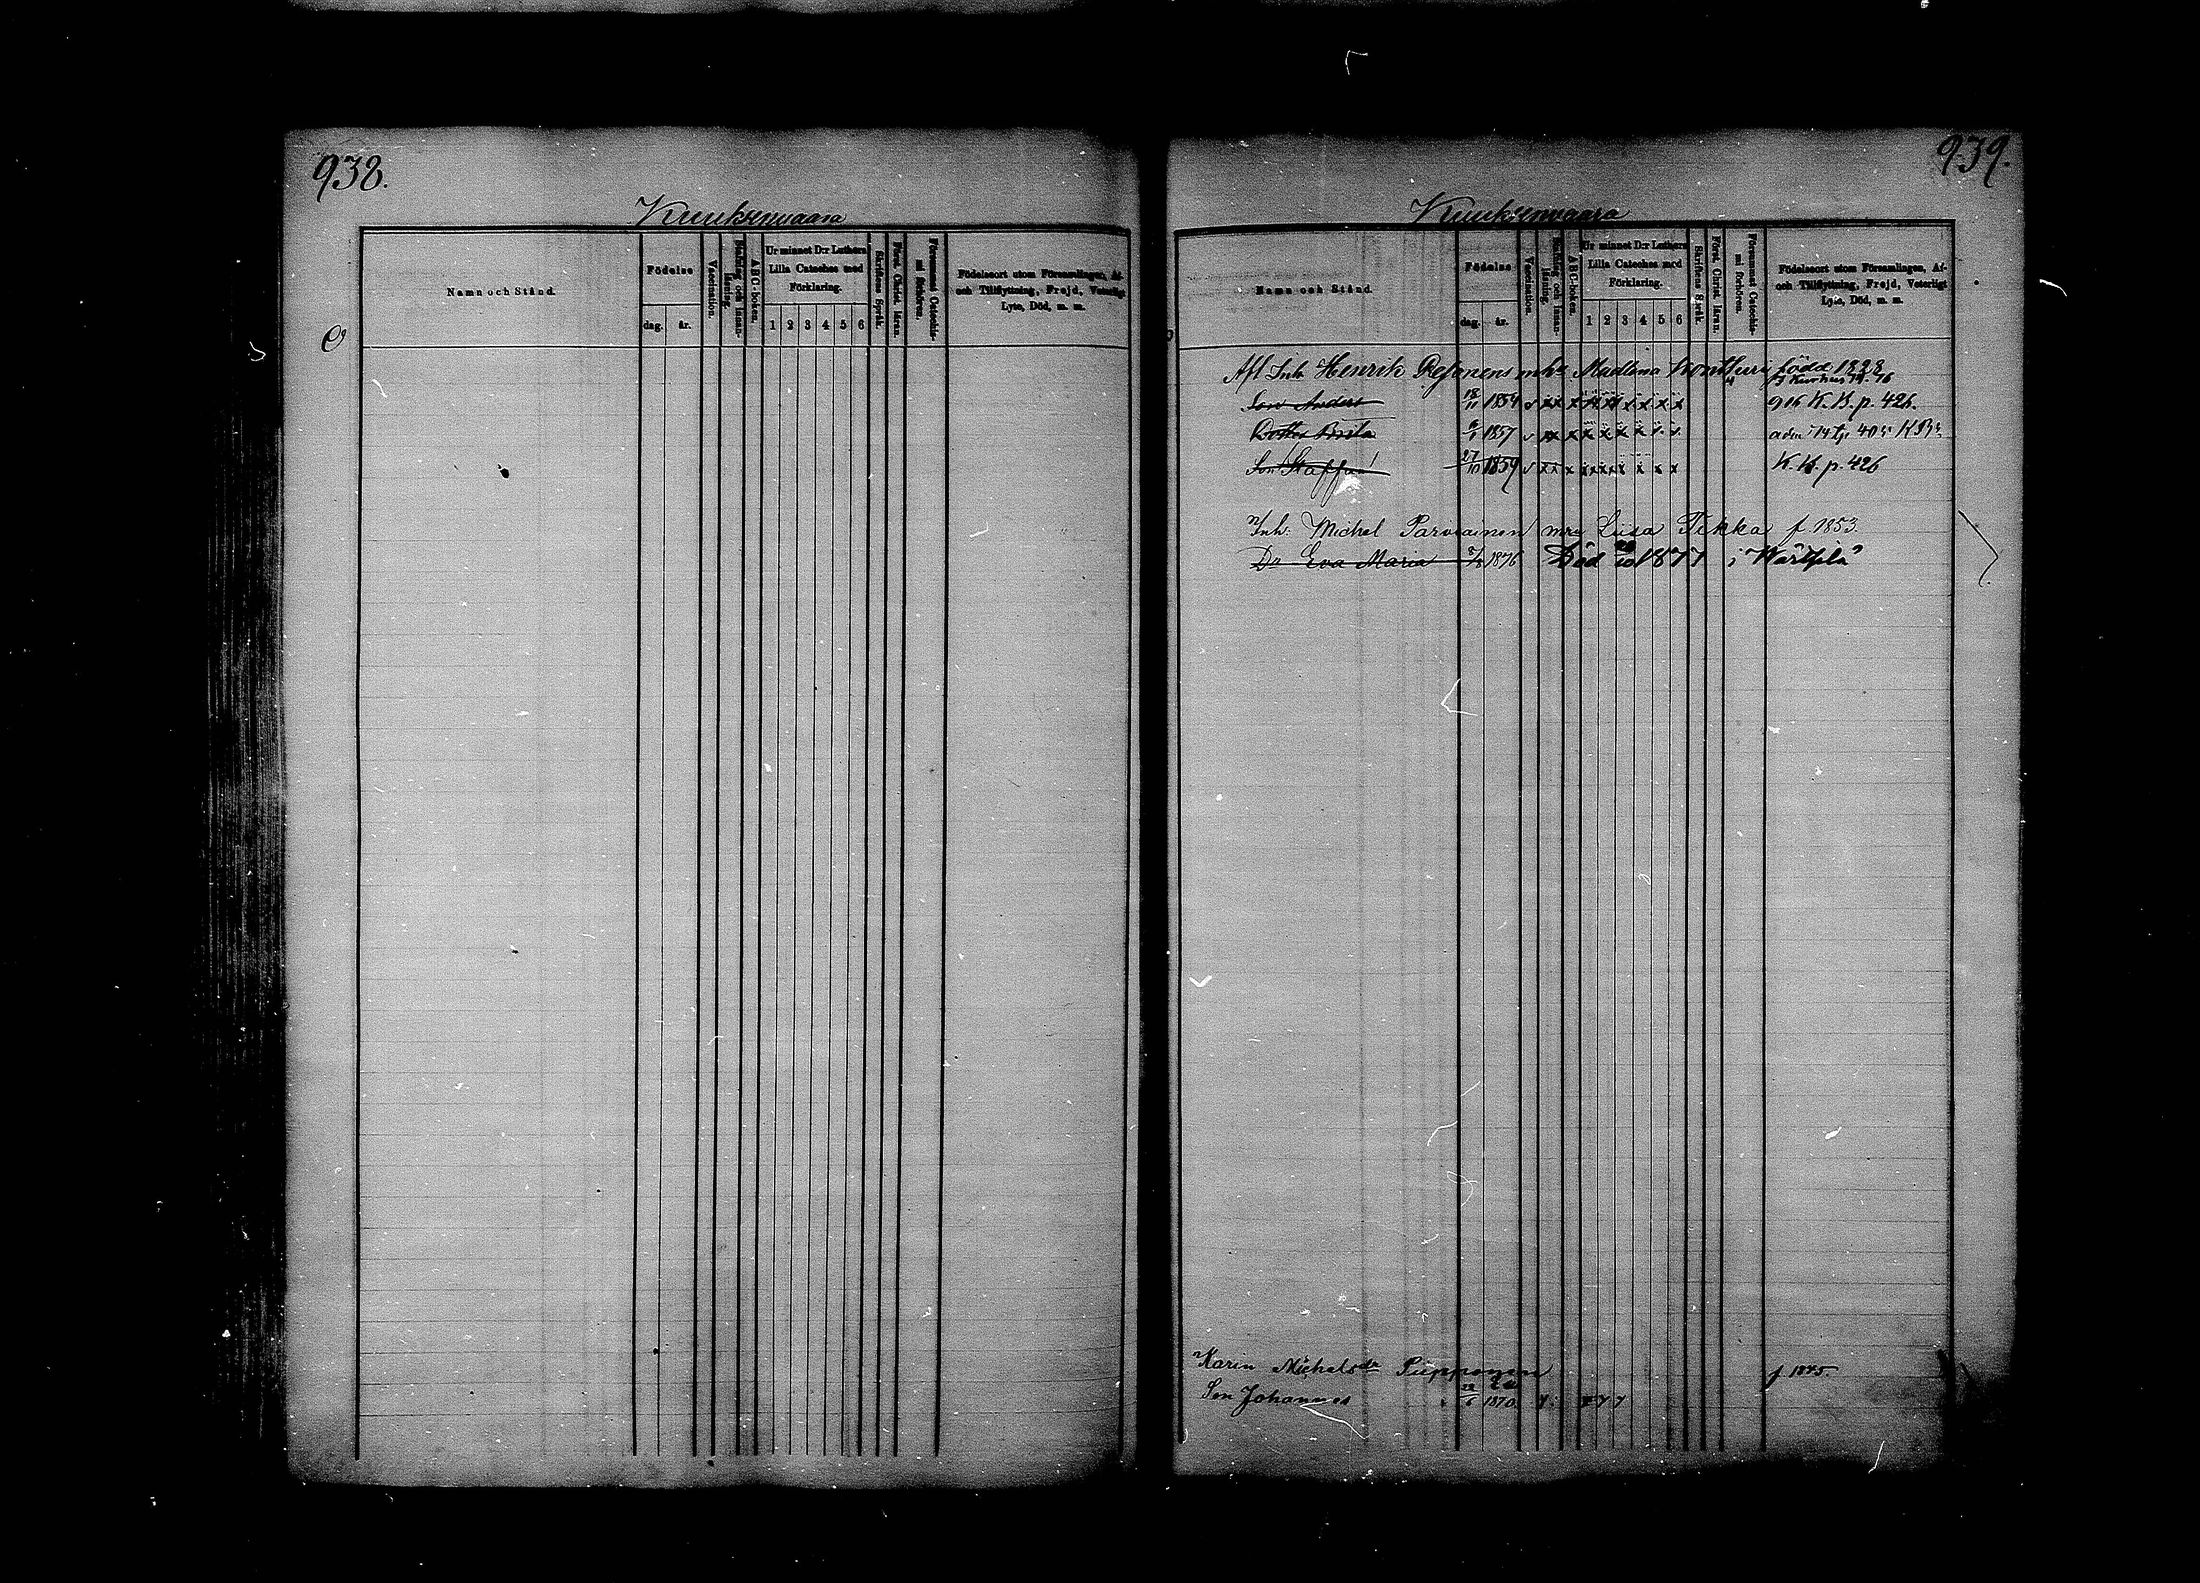 938.
Kuuksenvaara
Namn och Stånd.
Födelse
dag. år.
Vaccination.
Stafning och Innanläsning.
A B C-boken.
Ur minnet D:r Luthers Lilla Cateches med Förklaring.
1 2 3 4 5 6
Skriftens Språk.
Först. Christ. läran.
Försummat Catechismi förhören.
Födelseort utom Församlingen, Af- och Tillflyttning, Frejd, Veterligt Lyte, Död, m. m.
939.
Kuuksenvaara
Namn och Stånd.
Födelse
dag. år.
Vaccination.
Stafning och Innanläsning.
A B C-boken.
Ur minnet D:r Luthers Lilla Cateches med Förklaring.
1 2 3 4 5 6
Skriftens Språk.
Först. Christ. läran.
Försummat Catechismi förhören.
Födelseort utom Församlingen, Af- och Tillflyttning, Frejd, Veterligt Lyte, Död, m. m.
Afl Inh Henrik enka Madlena Kontturi född 1828
Son Anders 18/11 1854 v xx x K.B. p. 426.
Dotter Brita 1857 v xx x
Son Staffan 27/10 1859 v xx x K.K. p. 426
Inh: Michel Parviainen Liisa Tikka f. 1853.
Dr Eva Maria 1876 Död 1877 i Wärtsilä
Karin Michelsdr Piipponen f. 1845.
Son Johannes 1870